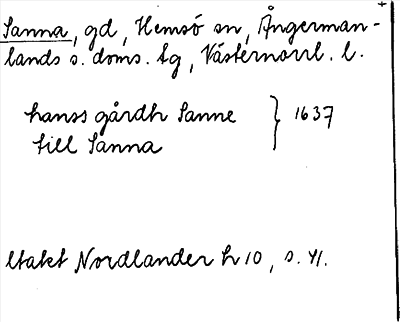 Sanna, gd, Hemsö sn, Ångerman-
lands s. doms. tg, Västernorrl. l.
hanss gårdh Sanne } 1637
till Sanna
Utakt Nordlander h 10, s. 41.